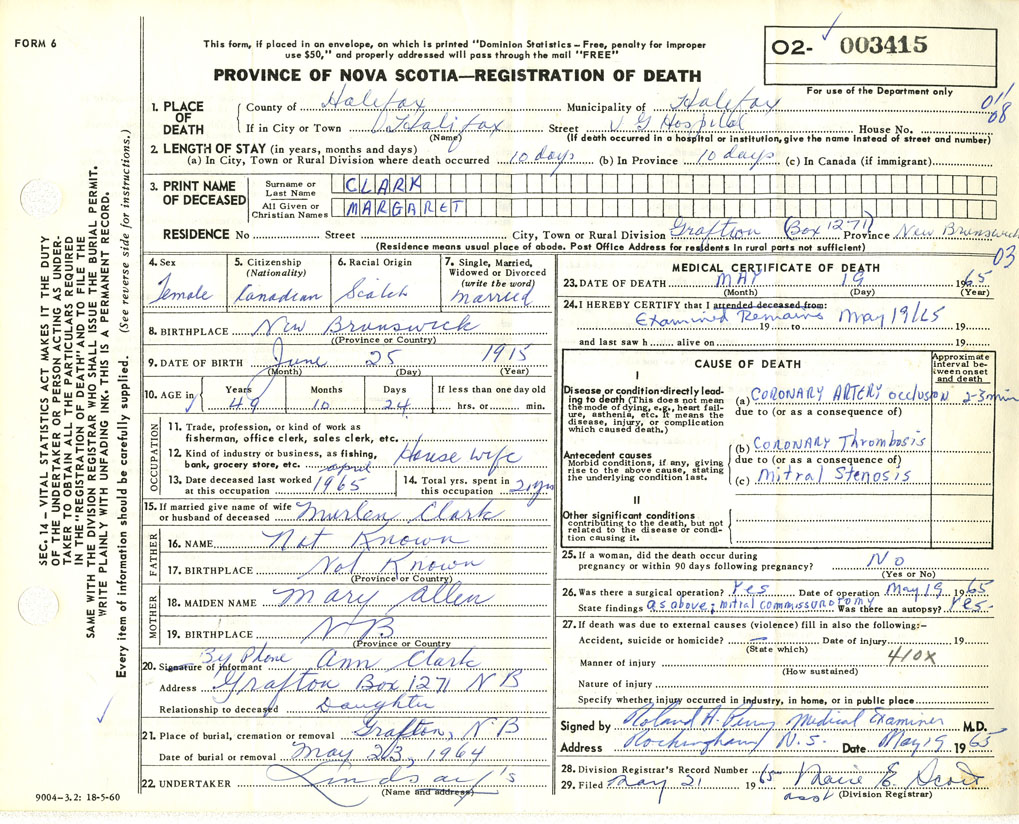 FORM 6
This form, if placed in an envelope, on which is printed "Dominion Statistics – Free, penalty for improper
use $50," and properly addressed will pass through the mail "FREE"
O2- 003415
For use of the Department only
PROVINCE OF NOVA SCOTIA—REGISTRATION OF DEATH
011
08
1. PLACE OF DEATH
County of Halifax Municipality of Halifax
If in City or Town Halifax Street V G Hospital House No.
(Name) (If death occurred in a hospital or institution, give the name instead of street and number)
2. LENGTH OF STAY (in years, months and days)
(a) In City, Town or Rural Division where death occurred 10 days (b) In Province 10 days (c) In Canada (if immigrant)
3. PRINT NAME OF DECEASED
Surname or Last Name CLARK
All Given or Christian Names MARGARET
RESIDENCE No Street City, Town or Rural Division Grafton (Box 1271) Province New Brunswick
(Residence means usual place of abode. Post Office Address for residents in rural parts not sufficient)
03
4. Sex Female
5. Citizenship (Nationality) Canadian
6. Racial Origin Scotch
7. Single, Married, Widowed or Divorced (write the word) married
8. BIRTHPLACE New Brunswick
(Province or Country)
9. DATE OF BIRTH June 25 1915
(Month) (Day) (Year)
10. AGE in Years 49 Months 10 Days 24 If less than one day old hrs. or min.
OCCUPATION
11. Trade, profession, or kind of work as
fisherman, office clerk, sales clerk, etc.
12. Kind of industry or business, as fishing,
bank, grocery store, etc. House wife
13. Date deceased last worked at this occupation april 1965
14. Total yrs. spent in this occupation 20 yrs
15. If married give name of wife
or husband of deceased Murlen Clark
FATHER
16. NAME Not Known
17. BIRTHPLACE Not Known
(Province or Country)
MOTHER
18. MAIDEN NAME Mary Allen
19. BIRTHPLACE N B
(Province or Country)
20. Signature of informant By Phone Ann Clark
Address Grafton Box 1271 N B
Relationship to deceased Daughter
21. Place of burial, cremation or removal Grafton, N B
Date of burial or removal May 23, 1964
22. UNDERTAKER Lindsay's
(Name and address)
9004–3.2: 18-5-60
MEDICAL CERTIFICATE OF DEATH
23. DATE OF DEATH MAY 19 1965
(Month) (Day) (Year)
24. I HEREBY CERTIFY that I attended deceased from:
Examined Remains 19 to May 19/65 19
and last saw h alive on 19
CAUSE OF DEATH
Approximate interval between onset and death
I
Disease or condition directly leading to death (This does not mean the mode of dying, e.g., heart failure, asthenia, etc. It means the disease, injury, or complication which caused death.)
(a) CORONARY ARTERY occlusion 2-3 min
due to (or as a consequence of)
Antecedent causes
Morbid conditions, if any, giving rise to the above cause, stating the underlying condition last.
(b) CORONARY Thrombosis
due to (or as a consequence of)
(c) Mitral Stenosis
II
Other significant conditions
contributing to the death, but not related to the disease or condition causing it.
25. If a woman, did the death occur during
pregnancy or within 90 days following pregnancy? No
(Yes or No)
26. Was there a surgical operation? Yes Date of operation May 19 1965
State findings as above; mitral commissurotomy Was there an autopsy? Yes-
27. If death was due to external causes (violence) fill in also the following:-
Accident, suicide or homicide? Date of injury 19
(State which)
410X
Manner of injury
(How sustained)
Nature of injury
Specify whether injury occurred in industry, in home, or in public place
Signed by Roland A. Perry Medical Examiner M.D.
Address Rockingham N.S. Date May 19 1965
28. Division Registrar's Record Number
29. Filed May 21 1965 Marie E. Scott
asst (Division Registrar)
SEC. 14 – VITAL STATISTICS ACT MAKES IT THE DUTY
OF THE UNDERTAKER OR PERSON ACTING AS UNDER-
TAKER TO OBTAIN ALL THE PARTICULARS REQUIRED
IN THE "REGISTRATION OF DEATH" AND TO FILE THE
SAME WITH THE DIVISION REGISTRAR WHO SHALL ISSUE THE BURIAL PERMIT.
WRITE PLAINLY WITH UNFADING INK. THIS IS A PERMANENT RECORD.
Every item of information should be carefully supplied. (See reverse side for instructions.)